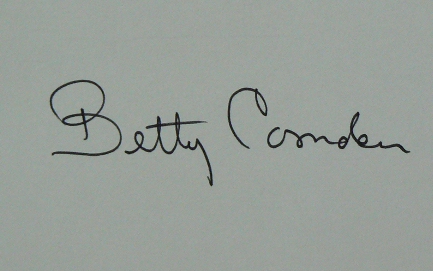 Betty Comden